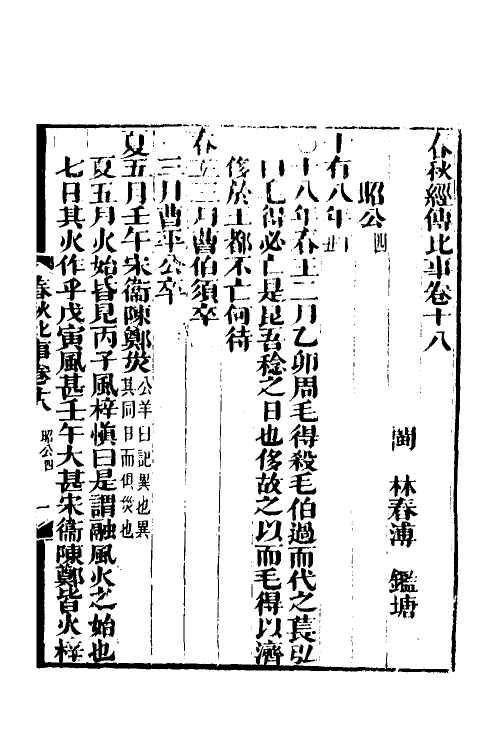 春秋經傳比事卷十八
閩 林春溥 鑑塘
昭公四
十有八年
十八年春王二月乙卯周毛得殺毛伯過而代之萇弘
曰毛得必亡是昆吾稔之日也侈故之以而毛得以濟
侈於王都不亡何待
春王三月曹伯須卒
三月曹平公卒
夏五月壬午宋衞陳鄭災公羊曰記異也異其同日而俱災也
夏五月火始昏見丙子風梓愼曰是謂融風火之始也
七日其火作乎戊寅風甚壬午大甚宋衞陳鄭皆火梓
春秋比事卷十八 昭公四 一